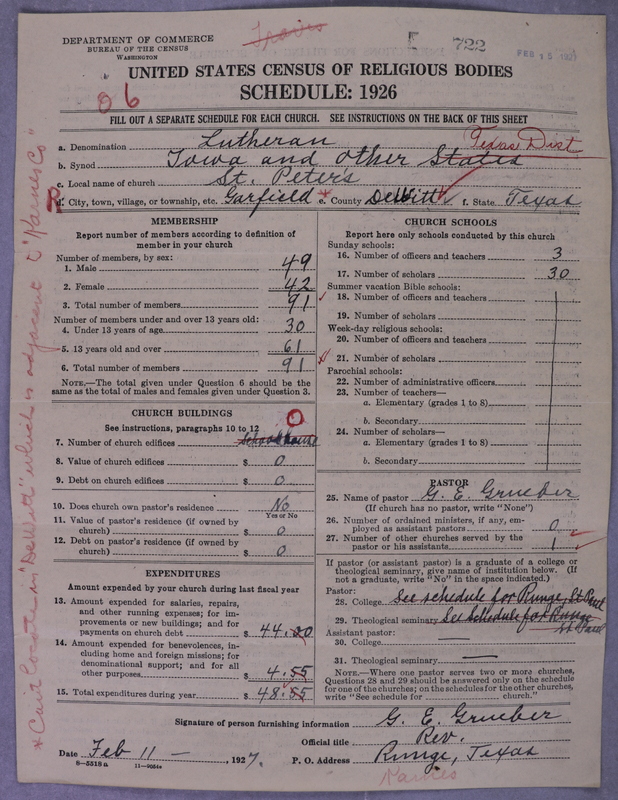 DEPARTMENT OF COMMERCE
BUREAU OF THE CENSUS
WASHINGTON
Travis
722
FEB 15 1927
UNITED STATES CENSUS OF RELIGIOUS BODIES
06
SCHEDULE: 1926
FILL OUT A SEPARATE SCHEDULE FOR EACH CHURCH. SEE INSTRUCTIONS ON THE BACK OF THIS SHEET
a. Denomination Lutheran Texas Dist
b. Synod Iowa and other States
c. Local name of church St. Peter's
R d. City, town, village, or township, etc. Garfield * e. County DeWitt f. State Texas
MEMBERSHIP
Report number of members according to definition of
member in your church
Number of members, by sex:
1. Male 49
2. Female 42
3. Total number of members 91
Number of members under and over 13 years old:
4. Under 13 years of age 30
5. 13 years old and over 61
6. Total number of members 91
NOTE.—The total given under Question 6 should be the
same as the total of males and females given under Question 3.
CHURCH BUILDINGS
See instructions, paragraphs 10 to 12 0
7. Number of church edifices Schoolhouse
8. Value of church edifices $ 0
9. Debt on church edifices $ 0
10. Does church own pastor's residence No
Yes or No
11. Value of pastor's residence (if owned by
church) $ 0
12. Debt on pastor's residence (if owned by
church) $ 0
EXPENDITURES
Amount expended by your church during last fiscal year
13. Amount expended for salaries, repairs,
and other running expenses; for im-
provements or new buildings; and for
payments on church debt $ 44.00
14. Amount expended for benevolences, in-
cluding home and foreign missions; for
denominational support; and for all
other purposes $ 4.55
15. Total expenditures during year $ 48.55
CHURCH SCHOOLS
Report here only schools conducted by this church
Sunday schools:
16. Number of officers and teachers 3
17. Number of scholars 30
Summer vacation Bible schools:
18. Number of officers and teachers
19. Number of scholars
Week-day religious schools:
20. Number of officers and teachers
21. Number of scholars
Parochial schools:
22. Number of administrative officers
23. Number of teachers—
a. Elementary (grades 1 to 8)
b. Secondary
24. Number of scholars—
a. Elementary (grades 1 to 8)
b. Secondary
PASTOR
25. Name of pastor G. E. Grueber
(If church has no pastor, write "None")
26. Number of ordained ministers, if any, em-
ployed as assistant pastors 0
27. Number of other churches served by the
pastor or his assistants 1
If pastor (or assistant pastor) is a graduate of a college or
theological seminary, give name of institution below. (If
not a graduate, write "No" in the space indicated.)
Pastor:
28. College See schedule for Runge, St Paul
29. Theological seminary See schedule for Runge
St Paul
Assistant pastor:
30. College
31. Theological seminary
NOTE.—Where one pastor serves two or more churches,
Questions 28 and 29 should be answered only on the schedule
for one of the churches; on the schedules for the other churches,
write "See schedule for church."
Signature of person furnishing information G. E. Grueber
Official title Rev.
Date Feb 11 — , 1927. P. O. Address Runge, Texas
8—5518a 11—9064
Karnes